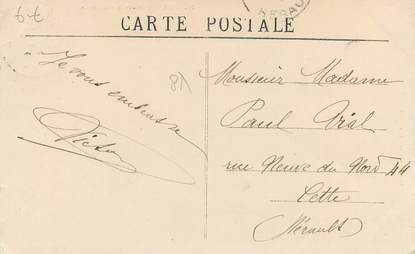 6-€
CARTE POSTALE
Je vous embrasse
Victor
81
Monsieur Madame
Paul Vial
rue Neuve du Nord 44
Cette
(Hérault)